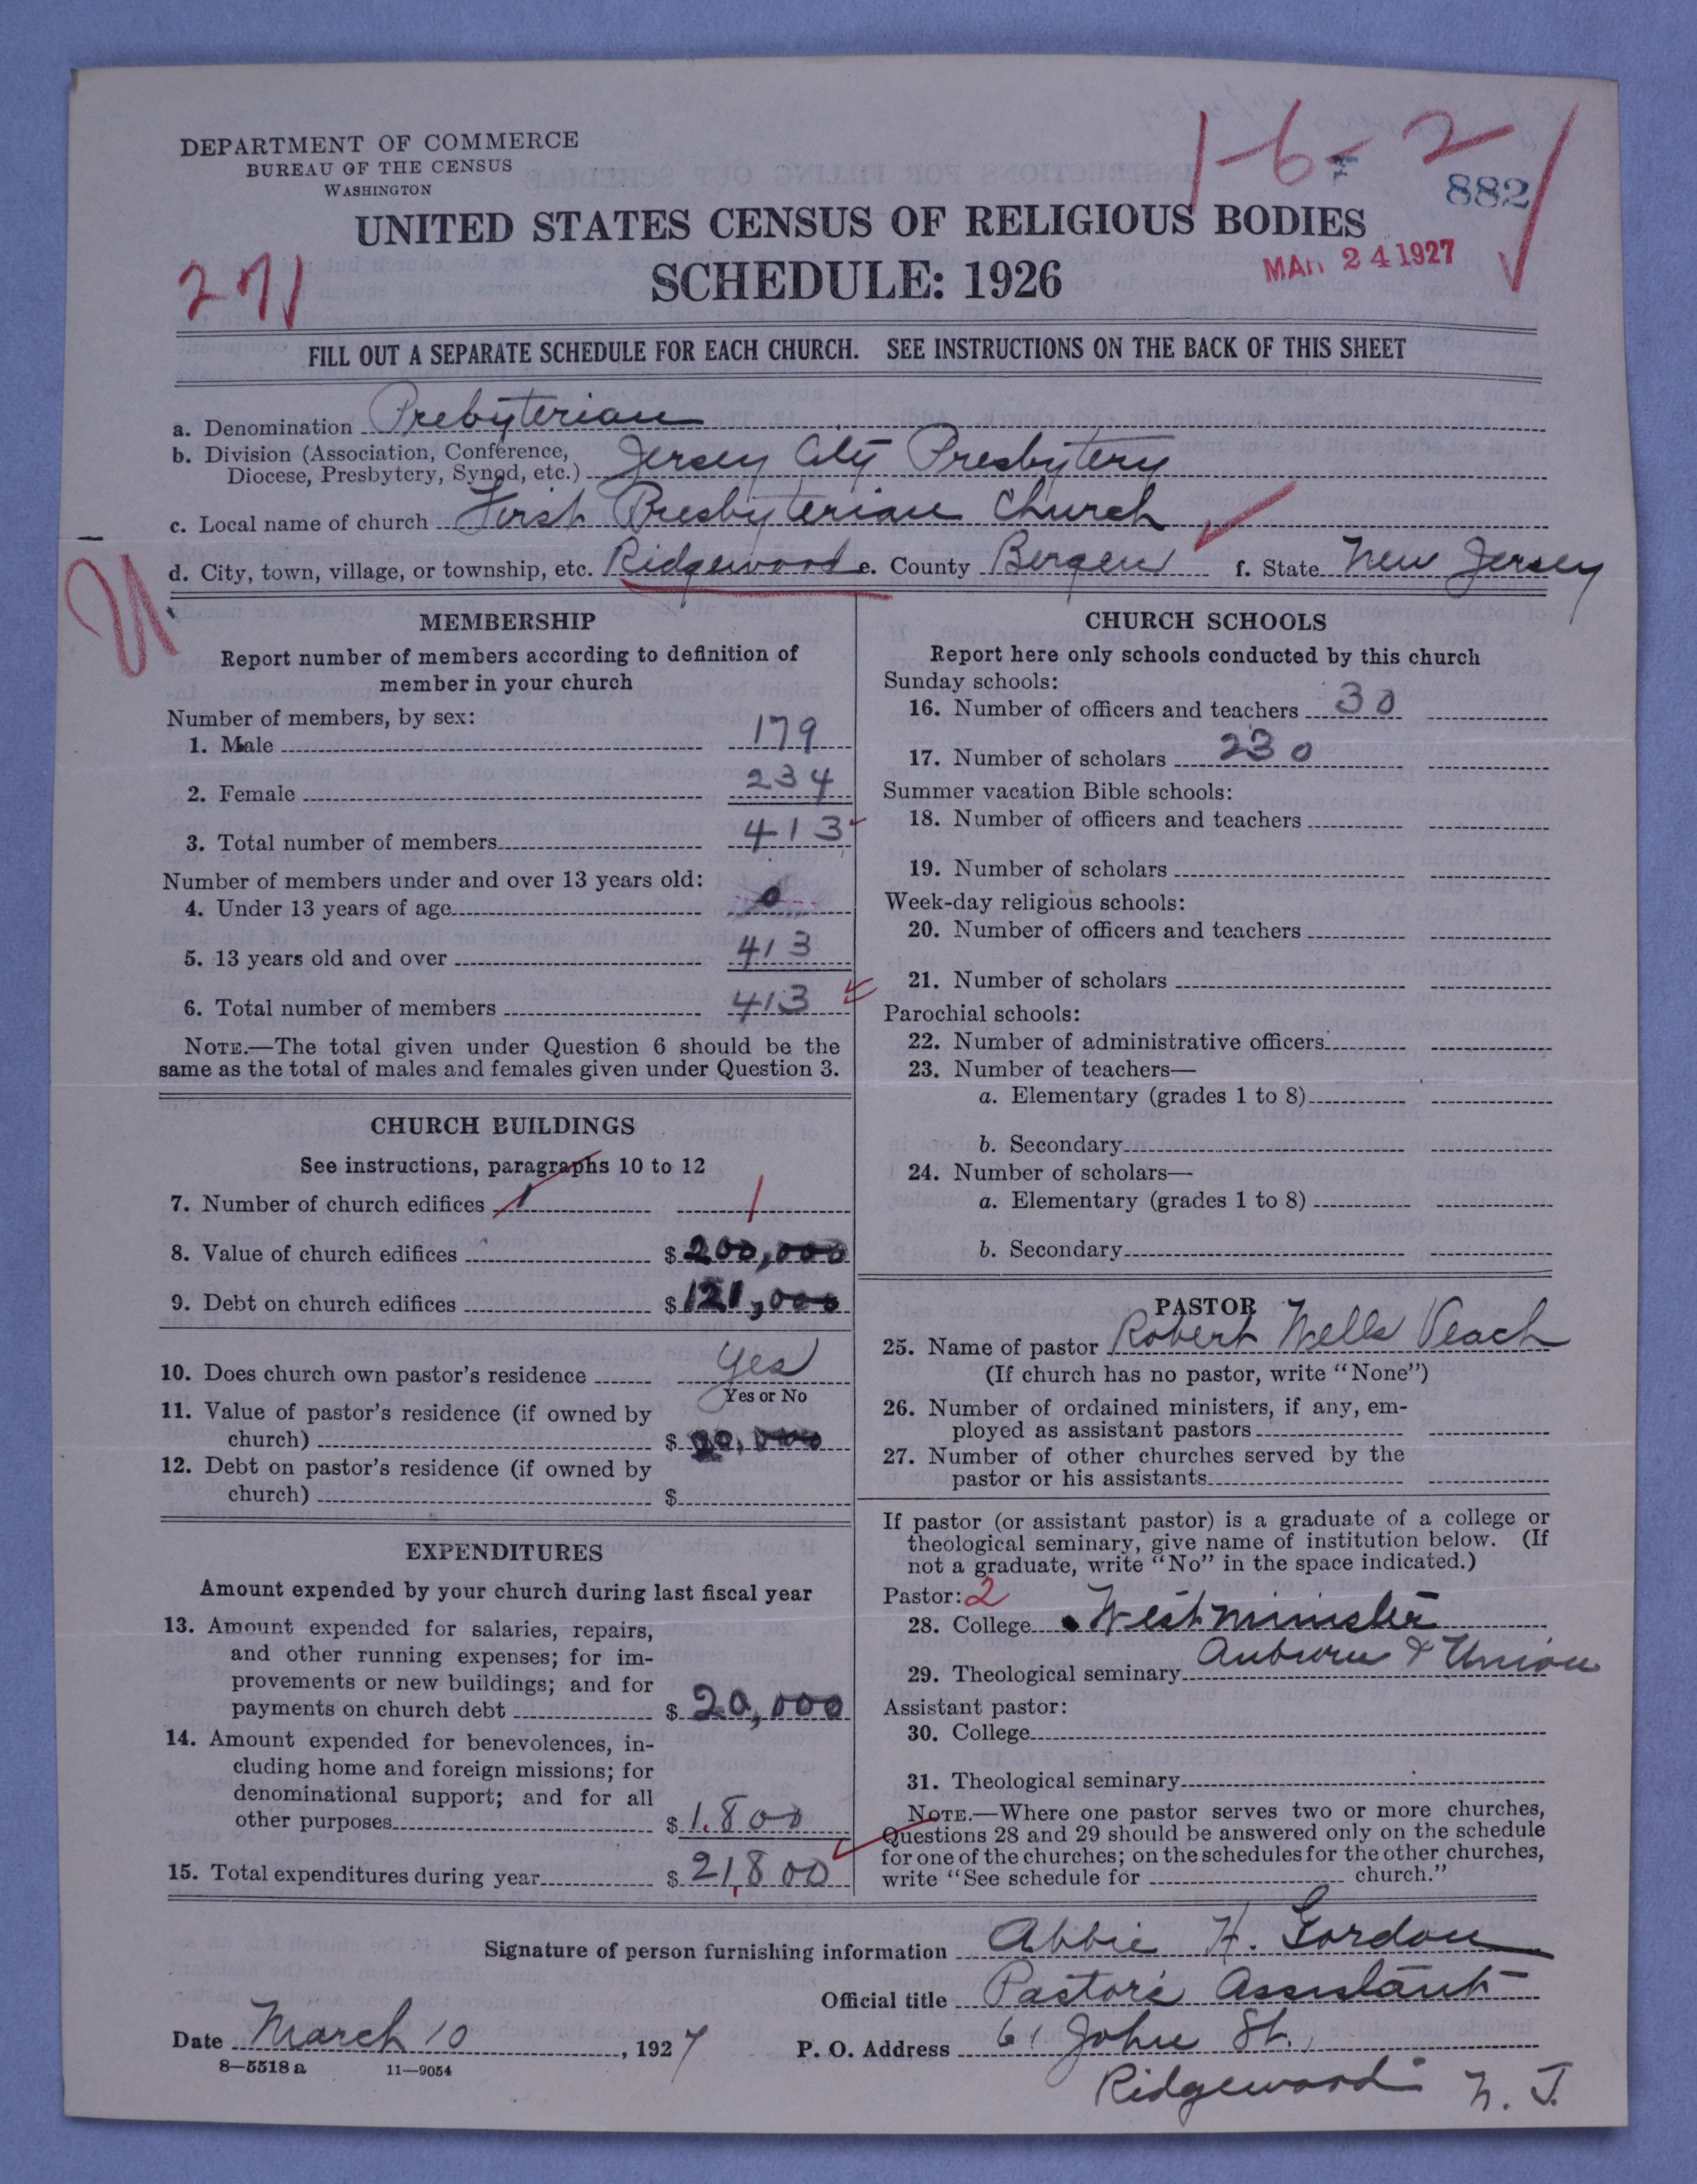 DEPARTMENT OF COMMERCE
BUREAU OF THE CENSUS
WASHINGTON
1-6-2
882
UNITED STATES CENSUS OF RELIGIOUS BODIES
271
SCHEDULE: 1926
MAR 24 1927
FILL OUT A SEPARATE SCHEDULE FOR EACH CHURCH. SEE INSTRUCTIONS ON THE BACK OF THIS SHEET
a. Denomination Prebyterian
b. Division (Association, Conference, Diocese, Presbytery, Synod, etc.) Jersey City Presbytery
c. Local name of church First Presbyterian Church
d. City, town, village, or township, etc. Ridgewood e. County Bergen f. State New Jersey
MEMBERSHIP
Report number of members according to definition of
member in your church
Number of members, by sex:
1. Male 179
2. Female 234
3. Total number of members 413
Number of members under and over 13 years old:
4. Under 13 years of age 0
5. 13 years old and over 413
6. Total number of members 413
NOTE.—The total given under Question 6 should be the
same as the total of males and females given under Question 3.
CHURCH BUILDINGS
See instructions, paragraphs 10 to 12
7. Number of church edifices 1 1
8. Value of church edifices $ 200,000
9. Debt on church edifices $ 121,000
10. Does church own pastor's residence Yes
Yes or No
11. Value of pastor's residence (if owned by
church) $
12. Debt on pastor's residence (if owned by
church) $
EXPENDITURES
Amount expended by your church during last fiscal year
13. Amount expended for salaries, repairs,
and other running expenses; for im-
provements or new buildings; and for
payments on church debt $ 20,000
14. Amount expended for benevolences, in-
cluding home and foreign missions; for
denominational support; and for all
other purposes $ 1.800
15. Total expenditures during year $ 21,800
CHURCH SCHOOLS
Report here only schools conducted by this church
Sunday schools:
16. Number of officers and teachers 30
17. Number of scholars 230
Summer vacation Bible schools:
18. Number of officers and teachers
19. Number of scholars
Week-day religious schools:
20. Number of officers and teachers
21. Number of scholars
Parochial schools:
22. Number of administrative officers
23. Number of teachers—
a. Elementary (grades 1 to 8)
b. Secondary
24. Number of scholars—
a. Elementary (grades 1 to 8)
b. Secondary
PASTOR
25. Name of pastor Robert Wells Veach
(If church has no pastor, write "None")
26. Number of ordained ministers, if any, em-
ployed as assistant pastors
27. Number of other churches served by the
pastor or his assistants
If pastor (or assistant pastor) is a graduate of a college or
theological seminary, give name of institution below. (If
not a graduate, write "No" in the space indicated.)
Pastor: 2
28. College Westminister
29. Theological seminary Auburn & Union
Assistant pastor:
30. College
31. Theological seminary
NOTE.—Where one pastor serves two or more churches,
Questions 28 and 29 should be answered only on the schedule
for one of the churches; on the schedules for the other churches,
write "See schedule for church."
Signature of person furnishing information Abbie H. Gordon
Official title Pastor's Assistant
Date March 10, 1927 P. O. Address 61 John St.,
8—5518 a 11—9054
Ridgewood N. J.